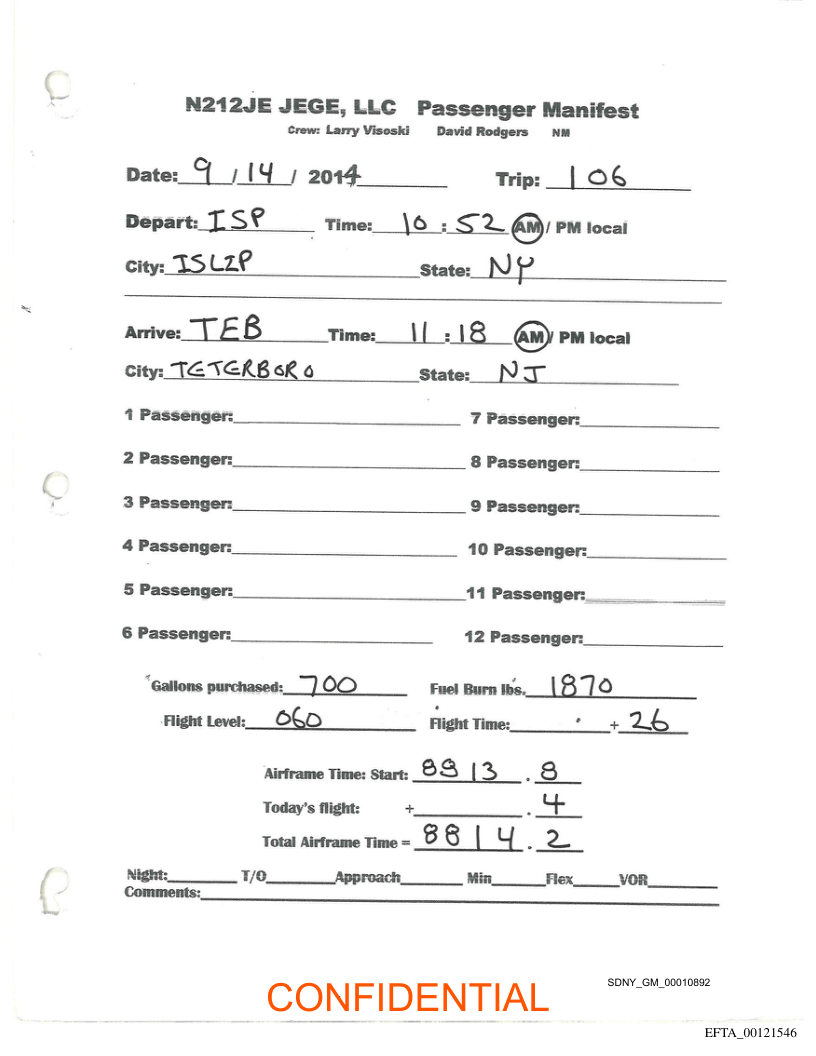 N212JE JEGE, LLC Passenger Manifest
Crew: Larry Visoski David Rodgers NM
Date: 9 / 14 / 2014 Trip: 106
Depart: ISP Time: 10 : 52 AM / PM local
City: ISLIP State: NY
Arrive: TEB Time: 11 : 18 AM / PM local
City: TETERBORO State: NJ
1 Passenger: 7 Passenger:
2 Passenger: 8 Passenger:
3 Passenger: 9 Passenger:
4 Passenger: 10 Passenger:
5 Passenger: 11 Passenger:
6 Passenger: 12 Passenger:
Gallons purchased: 700 Fuel Burn lbs. 1870
Flight Level: 060 Flight Time: + 26
Airframe Time: Start: 8813 . 8
Today's flight: + . 4
Total Airframe Time = 8814 . 2
Night: T/O Approach Min Flex VOR
Comments:
CONFIDENTIAL
SDNY_GM_00010892
EFTA_00121546